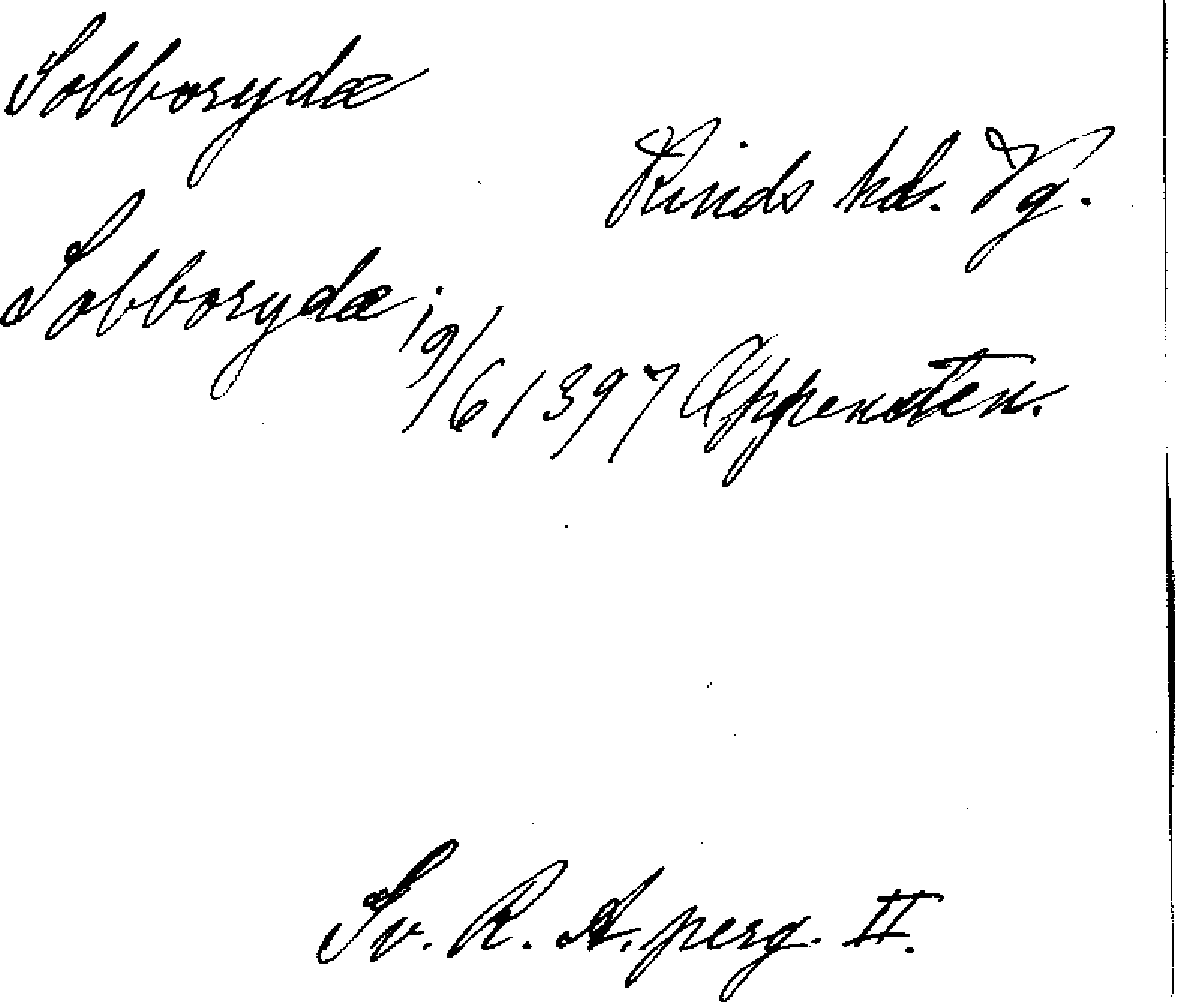 Sobborydæ
Kinds hd. Vg.
Sobborydæ 19/6 1397 Appensten.
Sv. R. A. perg. II.